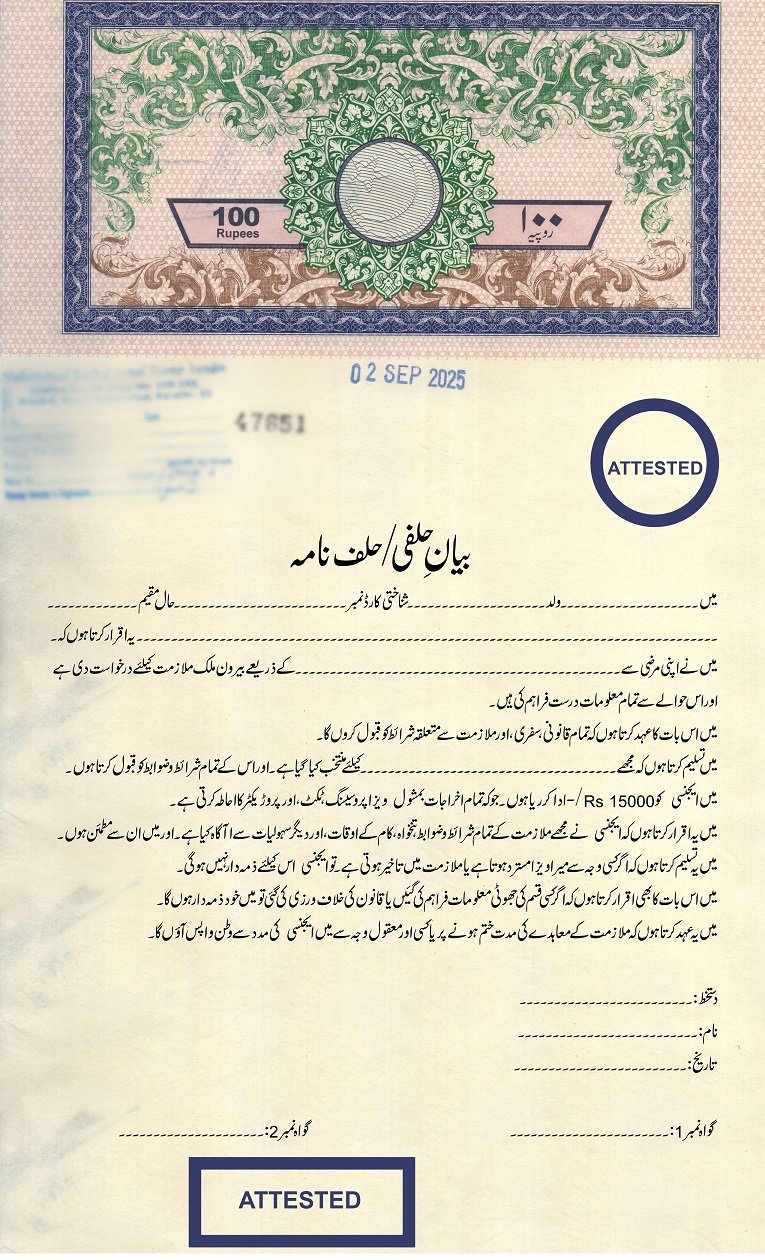 100
Rupees
۱۰۰
روپیہ
02 SEP 2025
47651
ATTESTED
بیانِ حلفی/حلف نامہ
میں ---------------------ولد---------------------شناختی کارڈ نمبر--------------------------حال مقیم--------------
--------------------------------------------------------------------------------یہ اقرار کرتا ہوں کہ۔
میں نے اپنی مرضی سے ------------------------------------------------کے ذریعے بیرون ملک ملازمت کیلئے درخواست دی ہے
اور اس حوالے سے تمام معلومات درست فراہم کی ہیں۔
میں اس بات کا عہد کرتا ہوں کہ تمام قانونی، سفری، اور ملازمت سے متعلقہ شرائط کو قبول کروں گا۔
میں تسلیم کرتا ہوں کہ مجھے --------------------------------------کیلئے منتخب کیا گیا ہے۔ اور اس کے تمام شرائط وضوابط کو قبول کرتا ہوں۔
میں ایجنسی کو Rs 15000/- ادا کر رہا ہوں۔ جو کہ تمام اخراجات بمشول ویزا پروسیسنگ، ٹکٹ، اور پروٹیکٹر کا احاطہ کرتی ہے۔
میں یہ اقرار کرتا ہوں کہ ایجنسی نے مجھے ملازمت کے تمام شرائط وضوابط، تنخواہ، کام کے اوقات، اور دیگر سہولیات سے آگاہ کیا ہے۔ اور میں ان سے مطمئن ہوں۔
میں یہ تسلیم کرتا ہوں کہ اگر کسی وجہ سے میرا ویزا مسترد ہوتا ہے یا ملازمت میں تاخیر ہوتی ہے۔ تو ایجنسی اس کیلئے ذمہ دار نہیں ہوگی۔
میں اس بات کا بھی اقرار کرتا ہوں کہ اگر کسی قسم کی جھوٹی معلومات فراہم کی گئیں یا قانون کی خلاف ورزی کی گئی تو میں خود ذمہ دار ہوں گا۔
میں یہ عہد کرتا ہوں کہ ملازمت کے معاہدے کی مدت ختم ہونے پر یا کسی اور معقول وجہ سے میں ایجنسی کی مدد سے وطن واپس آؤں گا۔
دستخط:-------------------------
نام:--------------------------
تاریخ:-------------------------
گواہ نمبر1:-----------------------
گواہ نمبر2:---------------------
ATTESTED